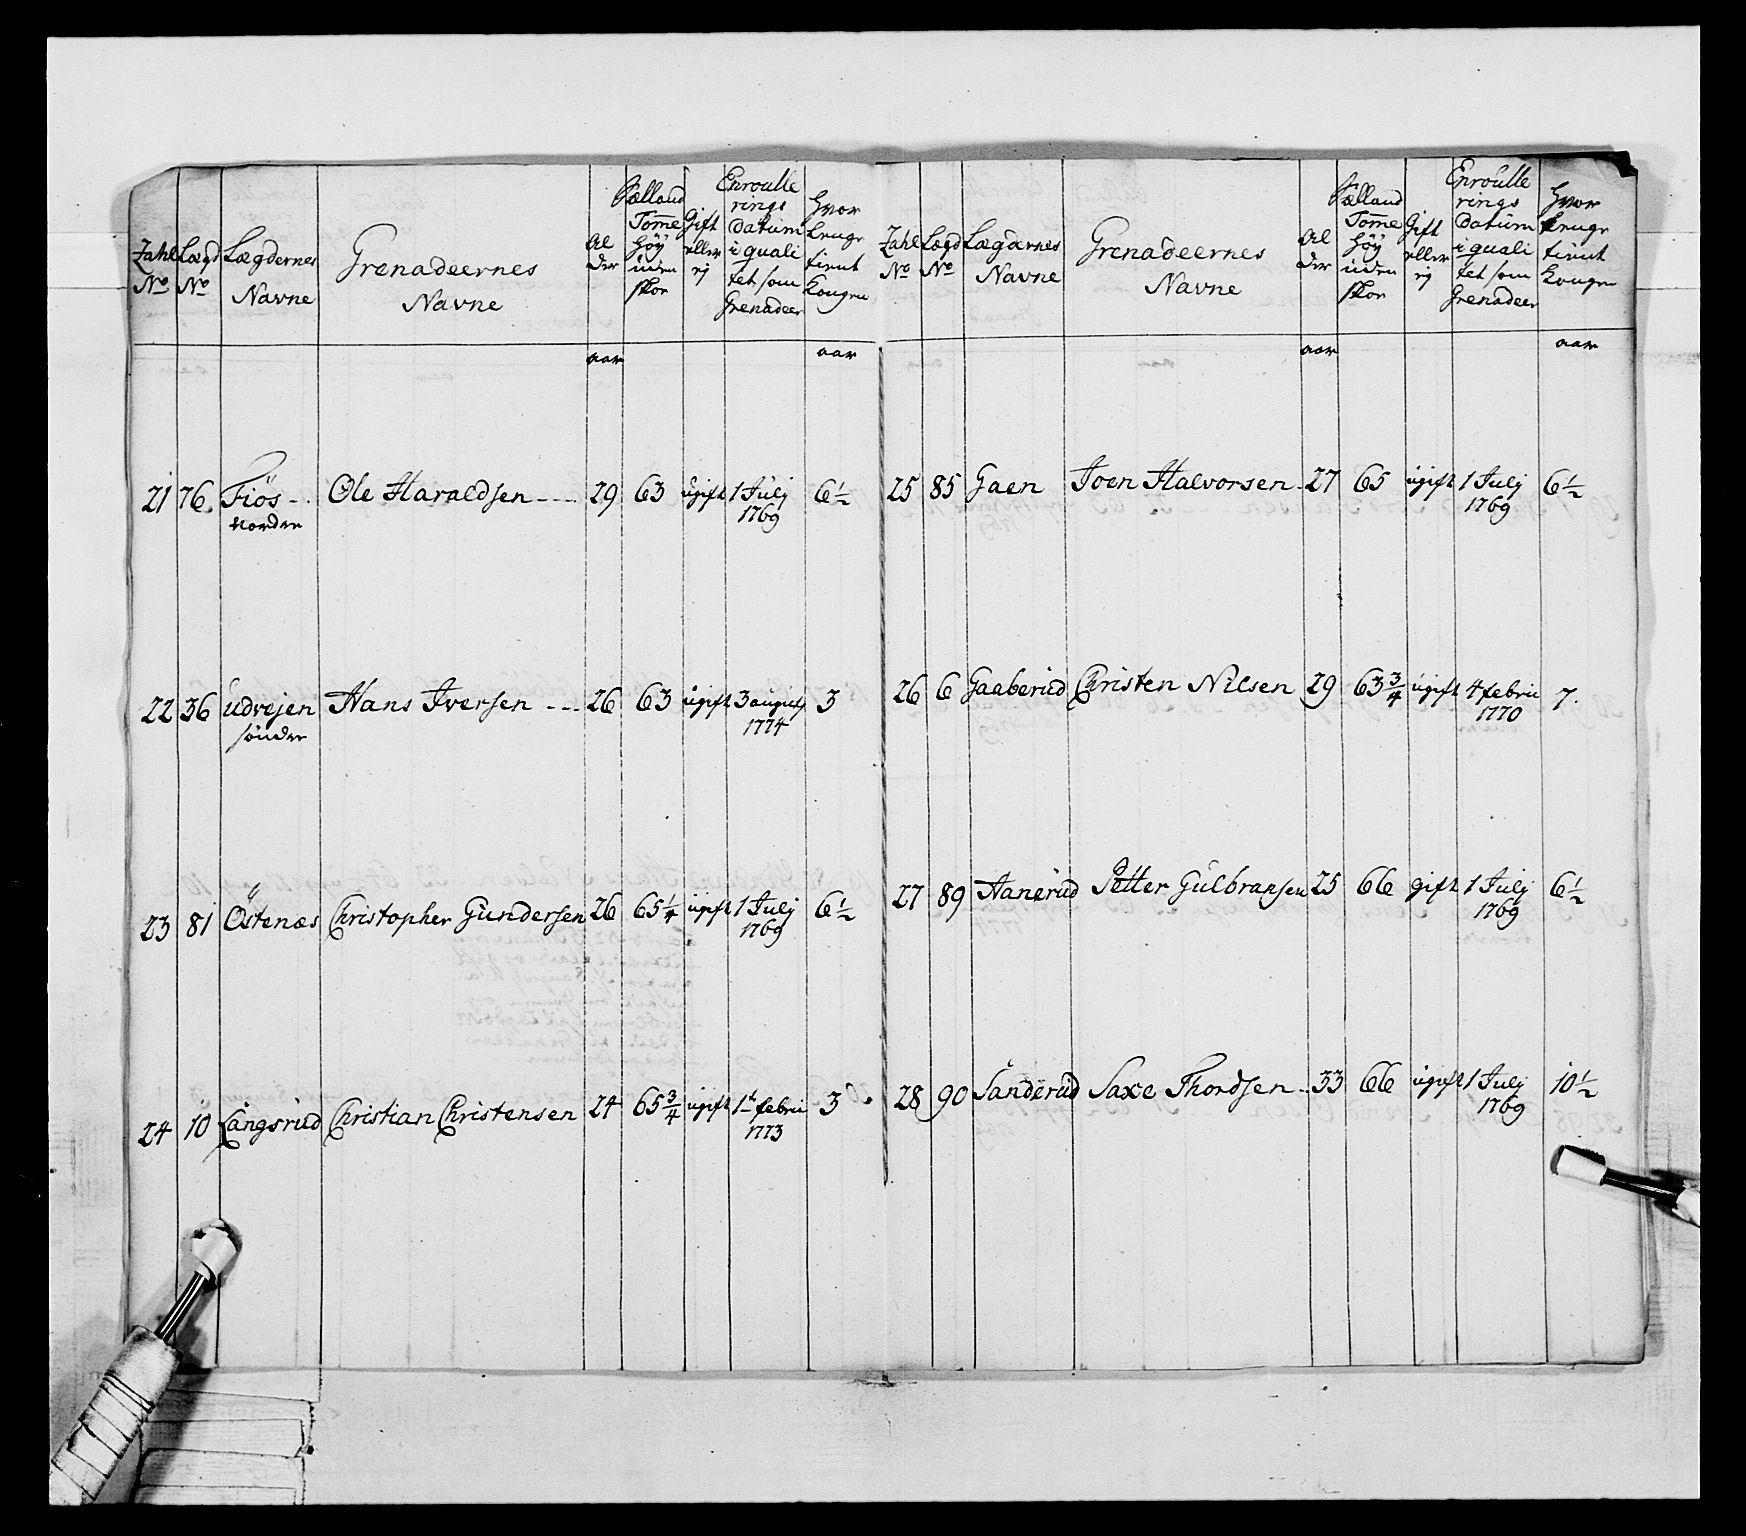 Zahl No | Lægd No | Lægdernes Navne | Grenadeernes Navne | Al der | Siælland Tomme Höÿ uden skoe | Gift eller ej | Enroulle rings Datum i quali tet som Grenadeer | Hvor lenge tient Kongen
aar | aar
21 | 76 | Fiös nordre | Ole Haraldsen | 29 | 63 | ugift | 1 Julj 1769 | 6½
22 | 36 | Udvejen söndre | Hans Iversen | 26 | 63 | ugift | 3 august 1774 | 3
23 | 81 | Östenæs | Christopher Gundersen | 26 | 65¼ | ugift | 1 Julj 1769 | 6½
24 | 10 | Langsrud | Christian Christensen | 24 | 65¾ | ugift | 1t febru 1773 | 3
Zahl No | Lægd No | Lægdernes Navne | Grenadeernes Navne | Al der | Siælland Tomme Höÿ uden skoe | Gift eller ej | Enroulle rings Datum i quali tet som Grenadeer | Hvor lenge tient Kongen
aar | aar
25 | 85 | Gaen | Joen Halvorsen | 27 | 65 | ugift | 1 Julj 1769 | 6½
26 | 6 | Gaaberud | Christen Nilsen | 29 | 63¾ | ugift | 4 febru 1770 | 7.
27 | 89 | Hanerud | Petter Gulbransen | 25 | 66 | gift | 1 Julj 1769 | 6½
28 | 90 | Sanderud | Saxe Thordsen | 33 | 66 | ugift | 1 Julj 1769 | 10½